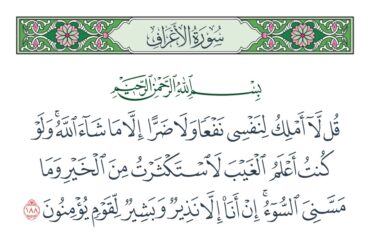 سُورَةُ الأَعْرَافِ
بِسْمِ اللَّهِ الرَّحْمَٰنِ الرَّحِيمِ
قُل لَّآ أَمْلِكُ لِنَفْسِى نَفْعًا وَلَا ضَرًّا إِلَّا مَا شَآءَ ٱللَّهُ ۚ وَلَوْ
كُنتُ أَعْلَمُ ٱلْغَيْبَ لَٱسْتَكْثَرْتُ مِنَ ٱلْخَيْرِ وَمَا
مَسَّنِىَ ٱلسُّوٓءُ ۚ إِنْ أَنَا۠ إِلَّا نَذِيرٌ وَبَشِيرٌ لِّقَوْمٍ يُؤْمِنُونَ ١٨٨